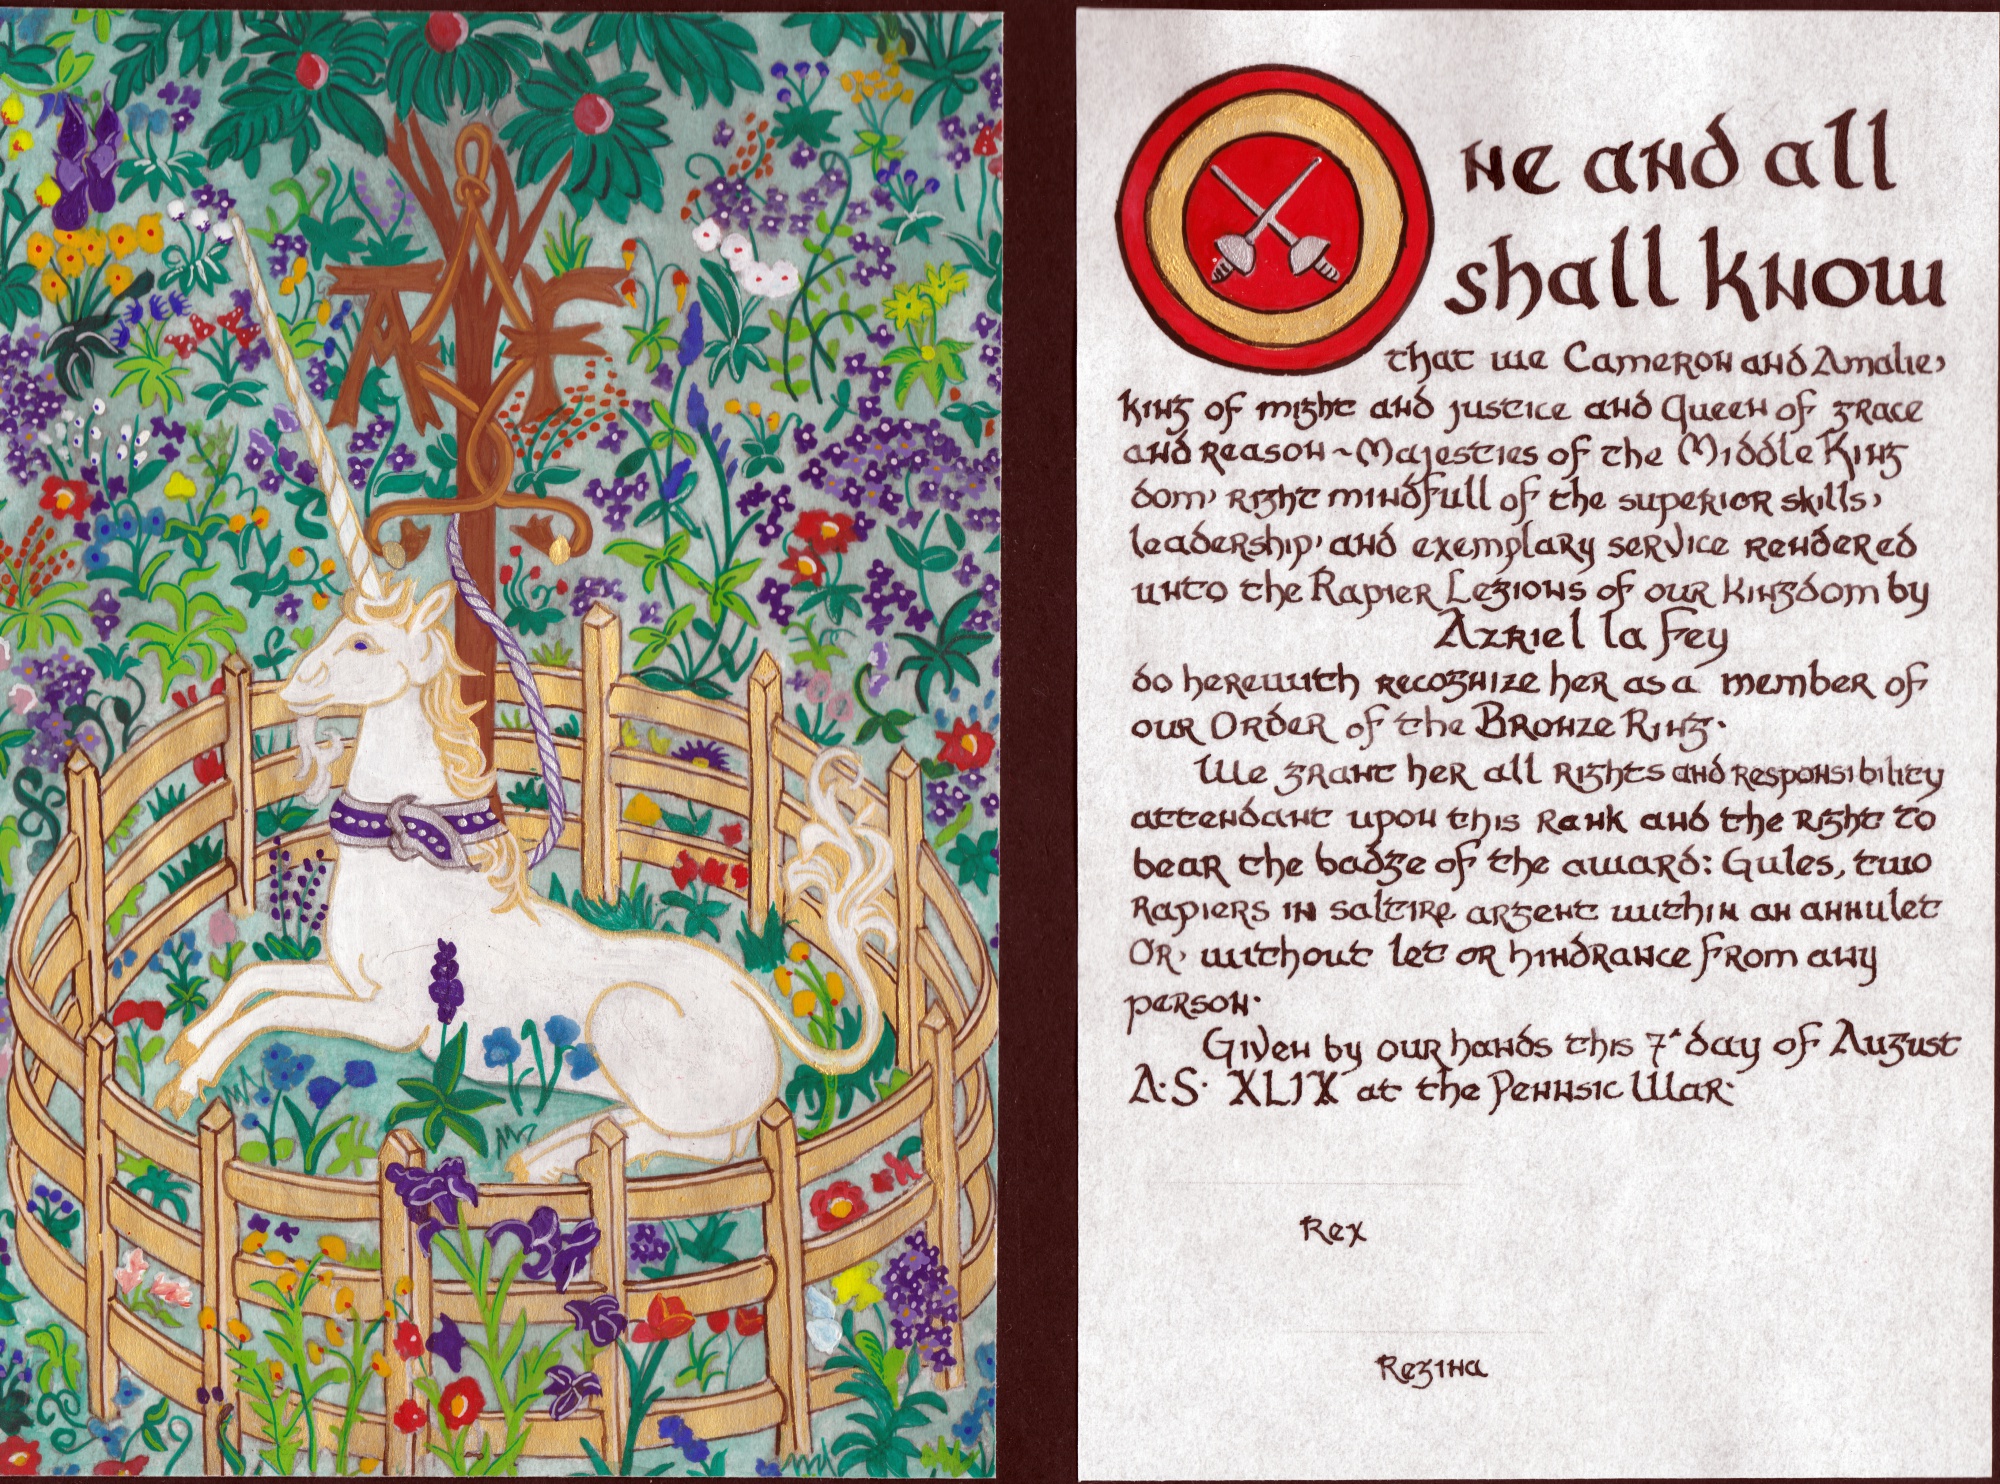 A F
One and all
shall know
that we Cameron and Amalie,
King of might and justice and Queen of grace
and reason ~ Majesties of the Middle King
dom, right mindfull of the superior skills,
leadership, and exemplary service rendered
unto the Rapier Legions of our Kingdom by
Azriel la Fey
do herewith recognize her as a member of
our Order of the Bronze Ring.
We grant her all rights and responsibility
attendant upon this rank and the right to
bear the badge of the award: Gules, two
rapiers in saltire argent within an annulet
Or, without let or hindrance from any
person.
Given by our hands this 7th day of August
A.S. XLIX at the Pennsic War.
Rex
Regina